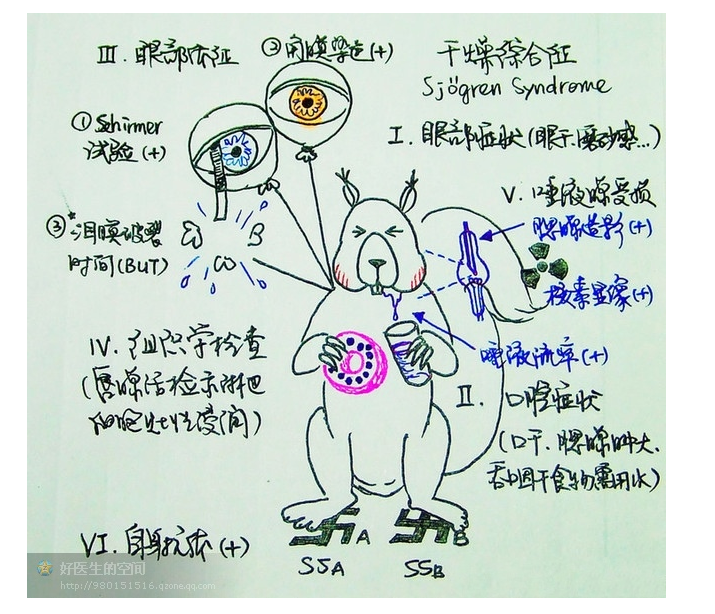 III. 眼部体征
② 角膜染色(+)
干燥综合征
Sjögren Syndrome
① Schirmer
试验(+)
I. 眼部症状(眼干、磨砂感...)
V. 唾液腺受损
腮腺造影(+)
③* 泪膜破裂
时间(BUT)
B
核素显像(+)
唾液流率(+)
IV. 组织学检查
(唇腺活检示淋巴
细胞灶性浸润)
II. 口腔症状
(口干、腮腺肿大、
吞咽干食物需用水)
VI. 自身抗体(+)
A
B
SSA
SSB
好医生的空间
http://980151516.qzone.qq.com